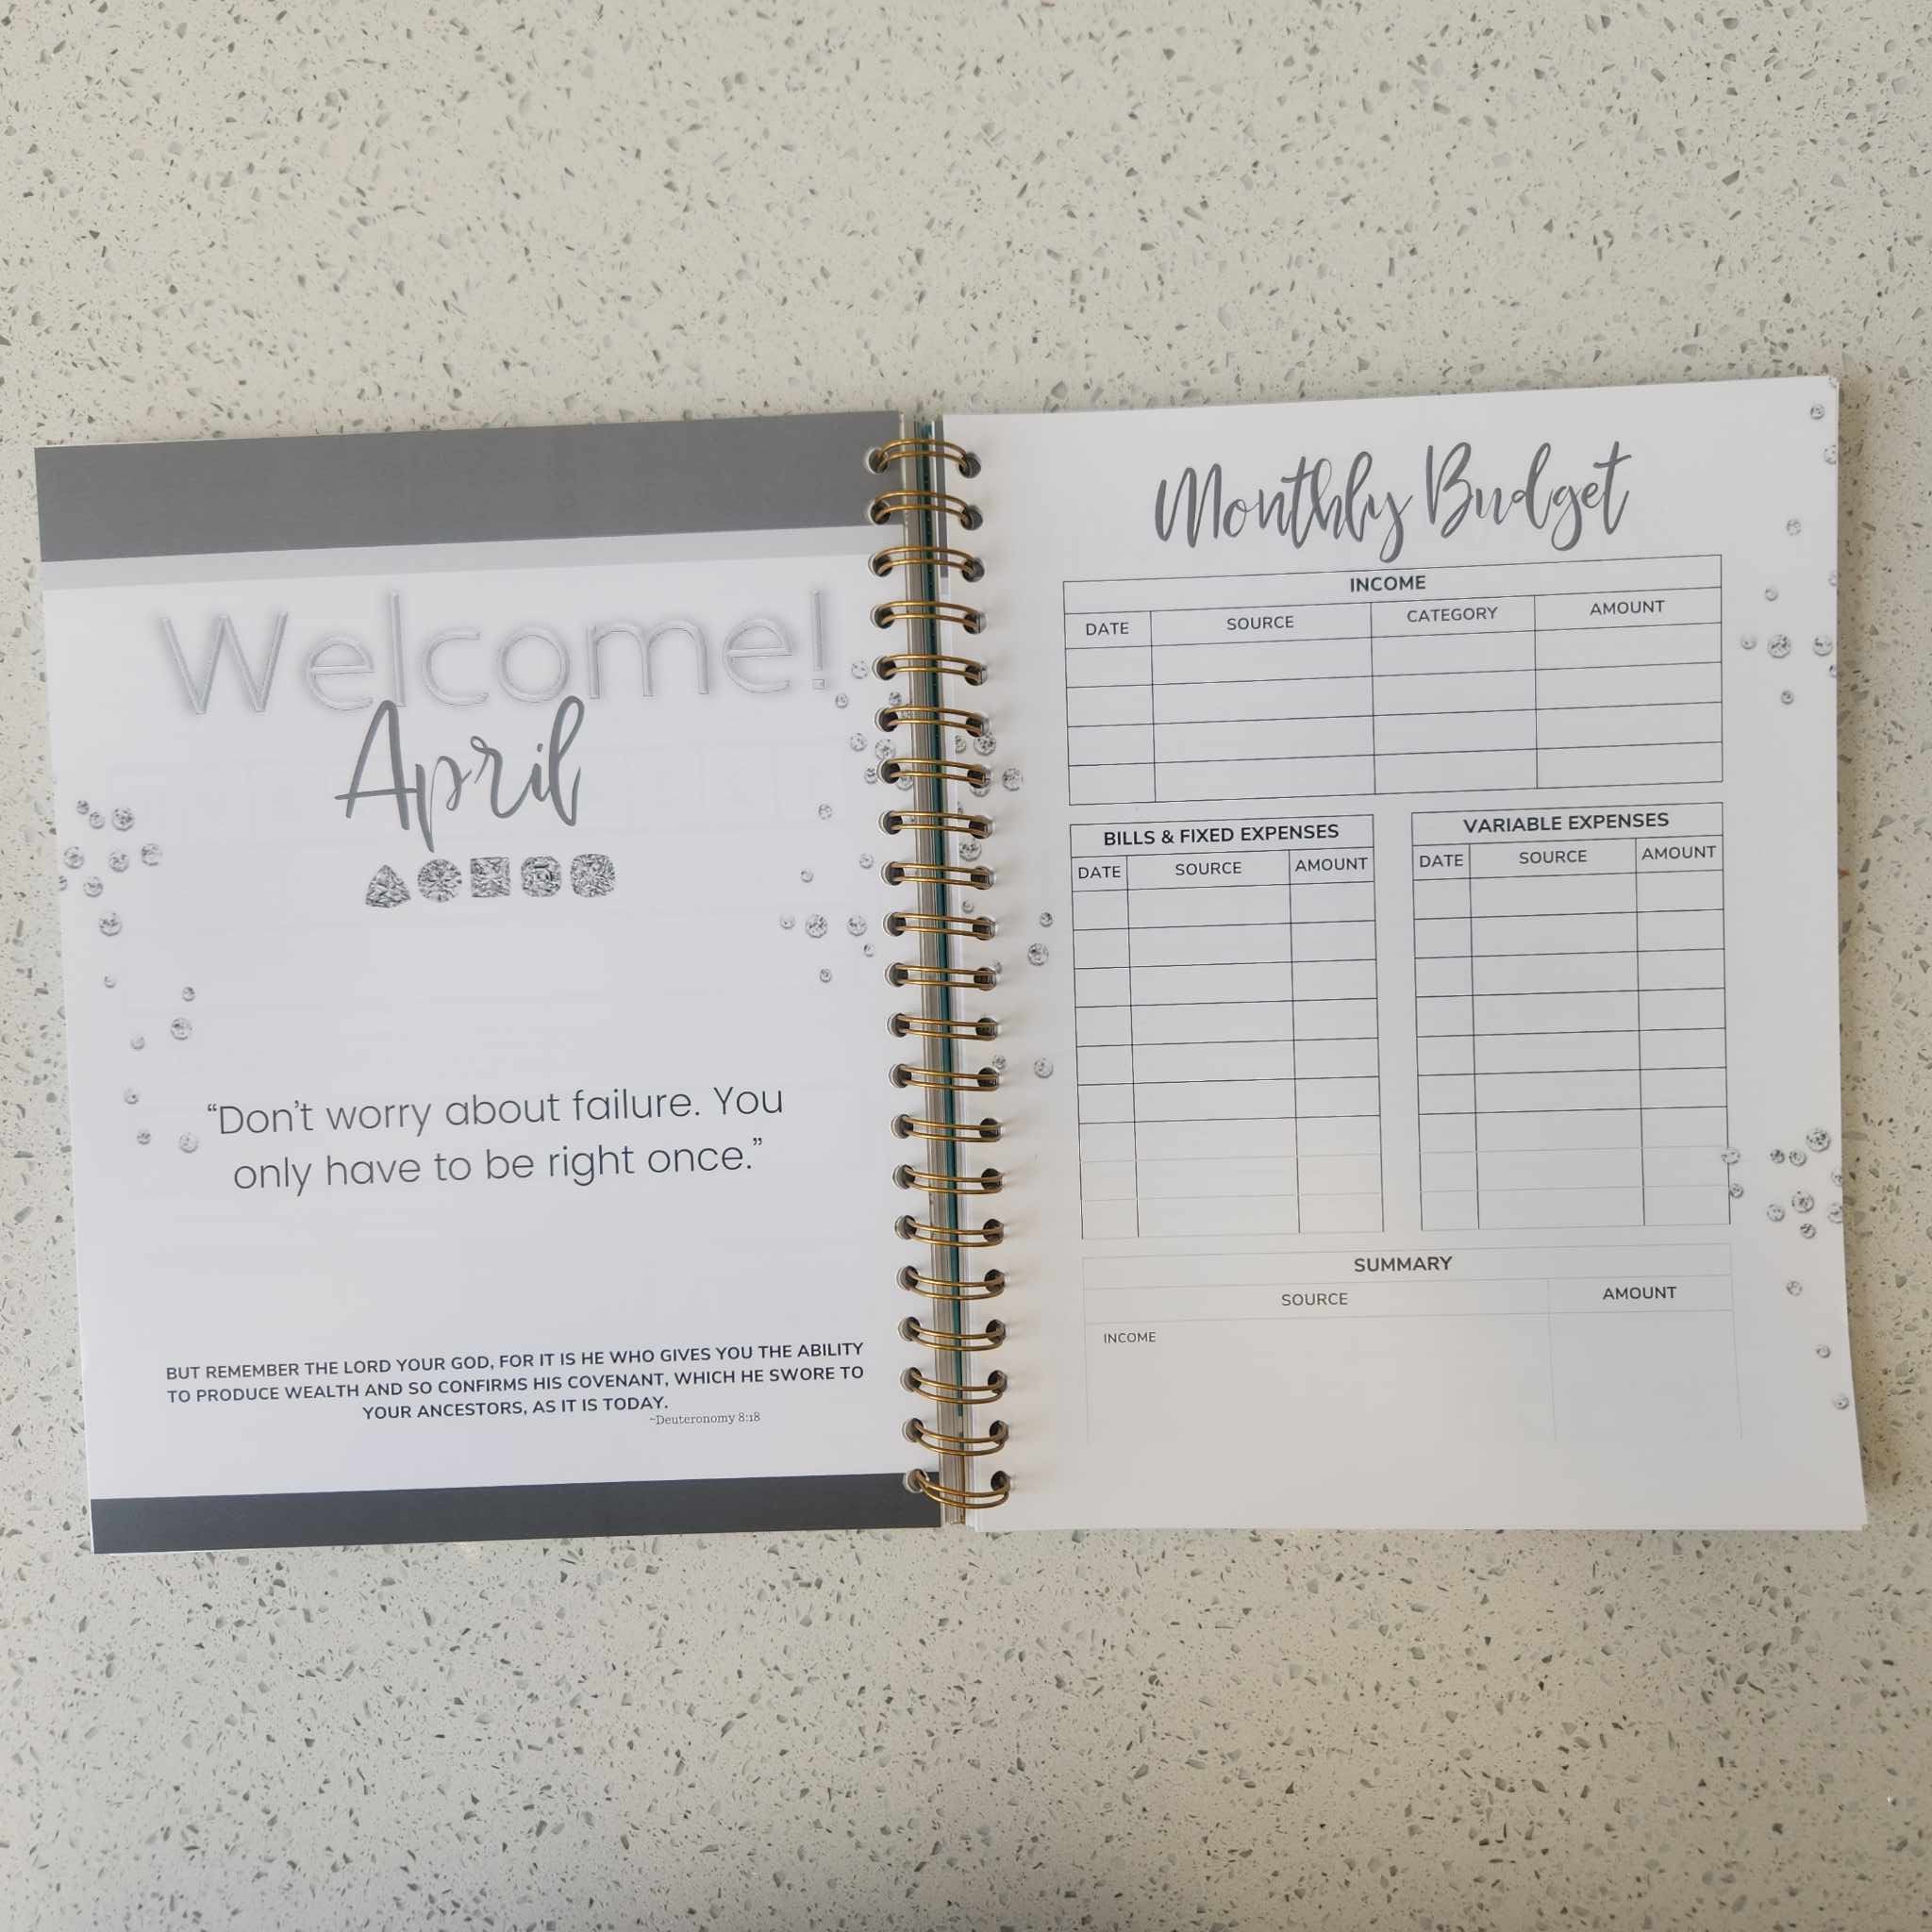 Welcome!
April
“Don’t worry about failure. You
only have to be right once.”
BUT REMEMBER THE LORD YOUR GOD, FOR IT IS HE WHO GIVES YOU THE ABILITY
TO PRODUCE WEALTH AND SO CONFIRMS HIS COVENANT, WHICH HE SWORE TO
YOUR ANCESTORS, AS IT IS TODAY.
~Deuteronomy 8:18
Monthly Budget
INCOME
DATE SOURCE CATEGORY AMOUNT
BILLS & FIXED EXPENSES
DATE SOURCE AMOUNT
VARIABLE EXPENSES
DATE SOURCE AMOUNT
SUMMARY
SOURCE AMOUNT
INCOME